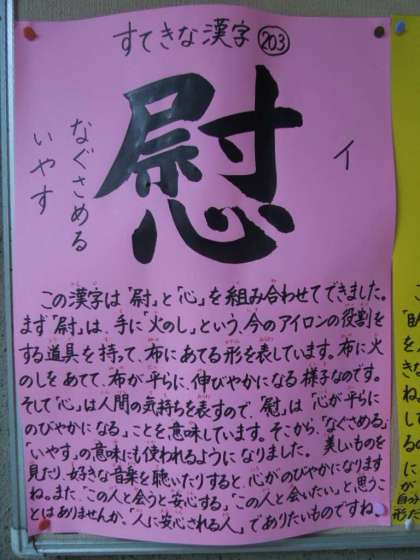 すてきな漢字 203
慰
イ
なぐさめる
いやす
この漢字は「尉」と「心」を組み合わせてできました。
まず「尉」は、手に「火のし」という、今のアイロンの役割を
する道具を持って、布にあてる形を表しています。布に火
のしをあてて、布が平らに、伸びやかになる様子なのです。
そして「心」は人間の気持ちを表すので、「慰」は「心が平らに
のびやかになる」ことを意味しています。そこから、「なぐさめる」
「いやす」の意味にも使われるようになりました。美しいものを
見たり、好きな音楽を聴いたりすると、心がのびやかになります
ね。また、「この人と会うと安心する」、「この人と会いたい」と思うこ
とはありませんか。「人に安心される人」でありたいものですね。